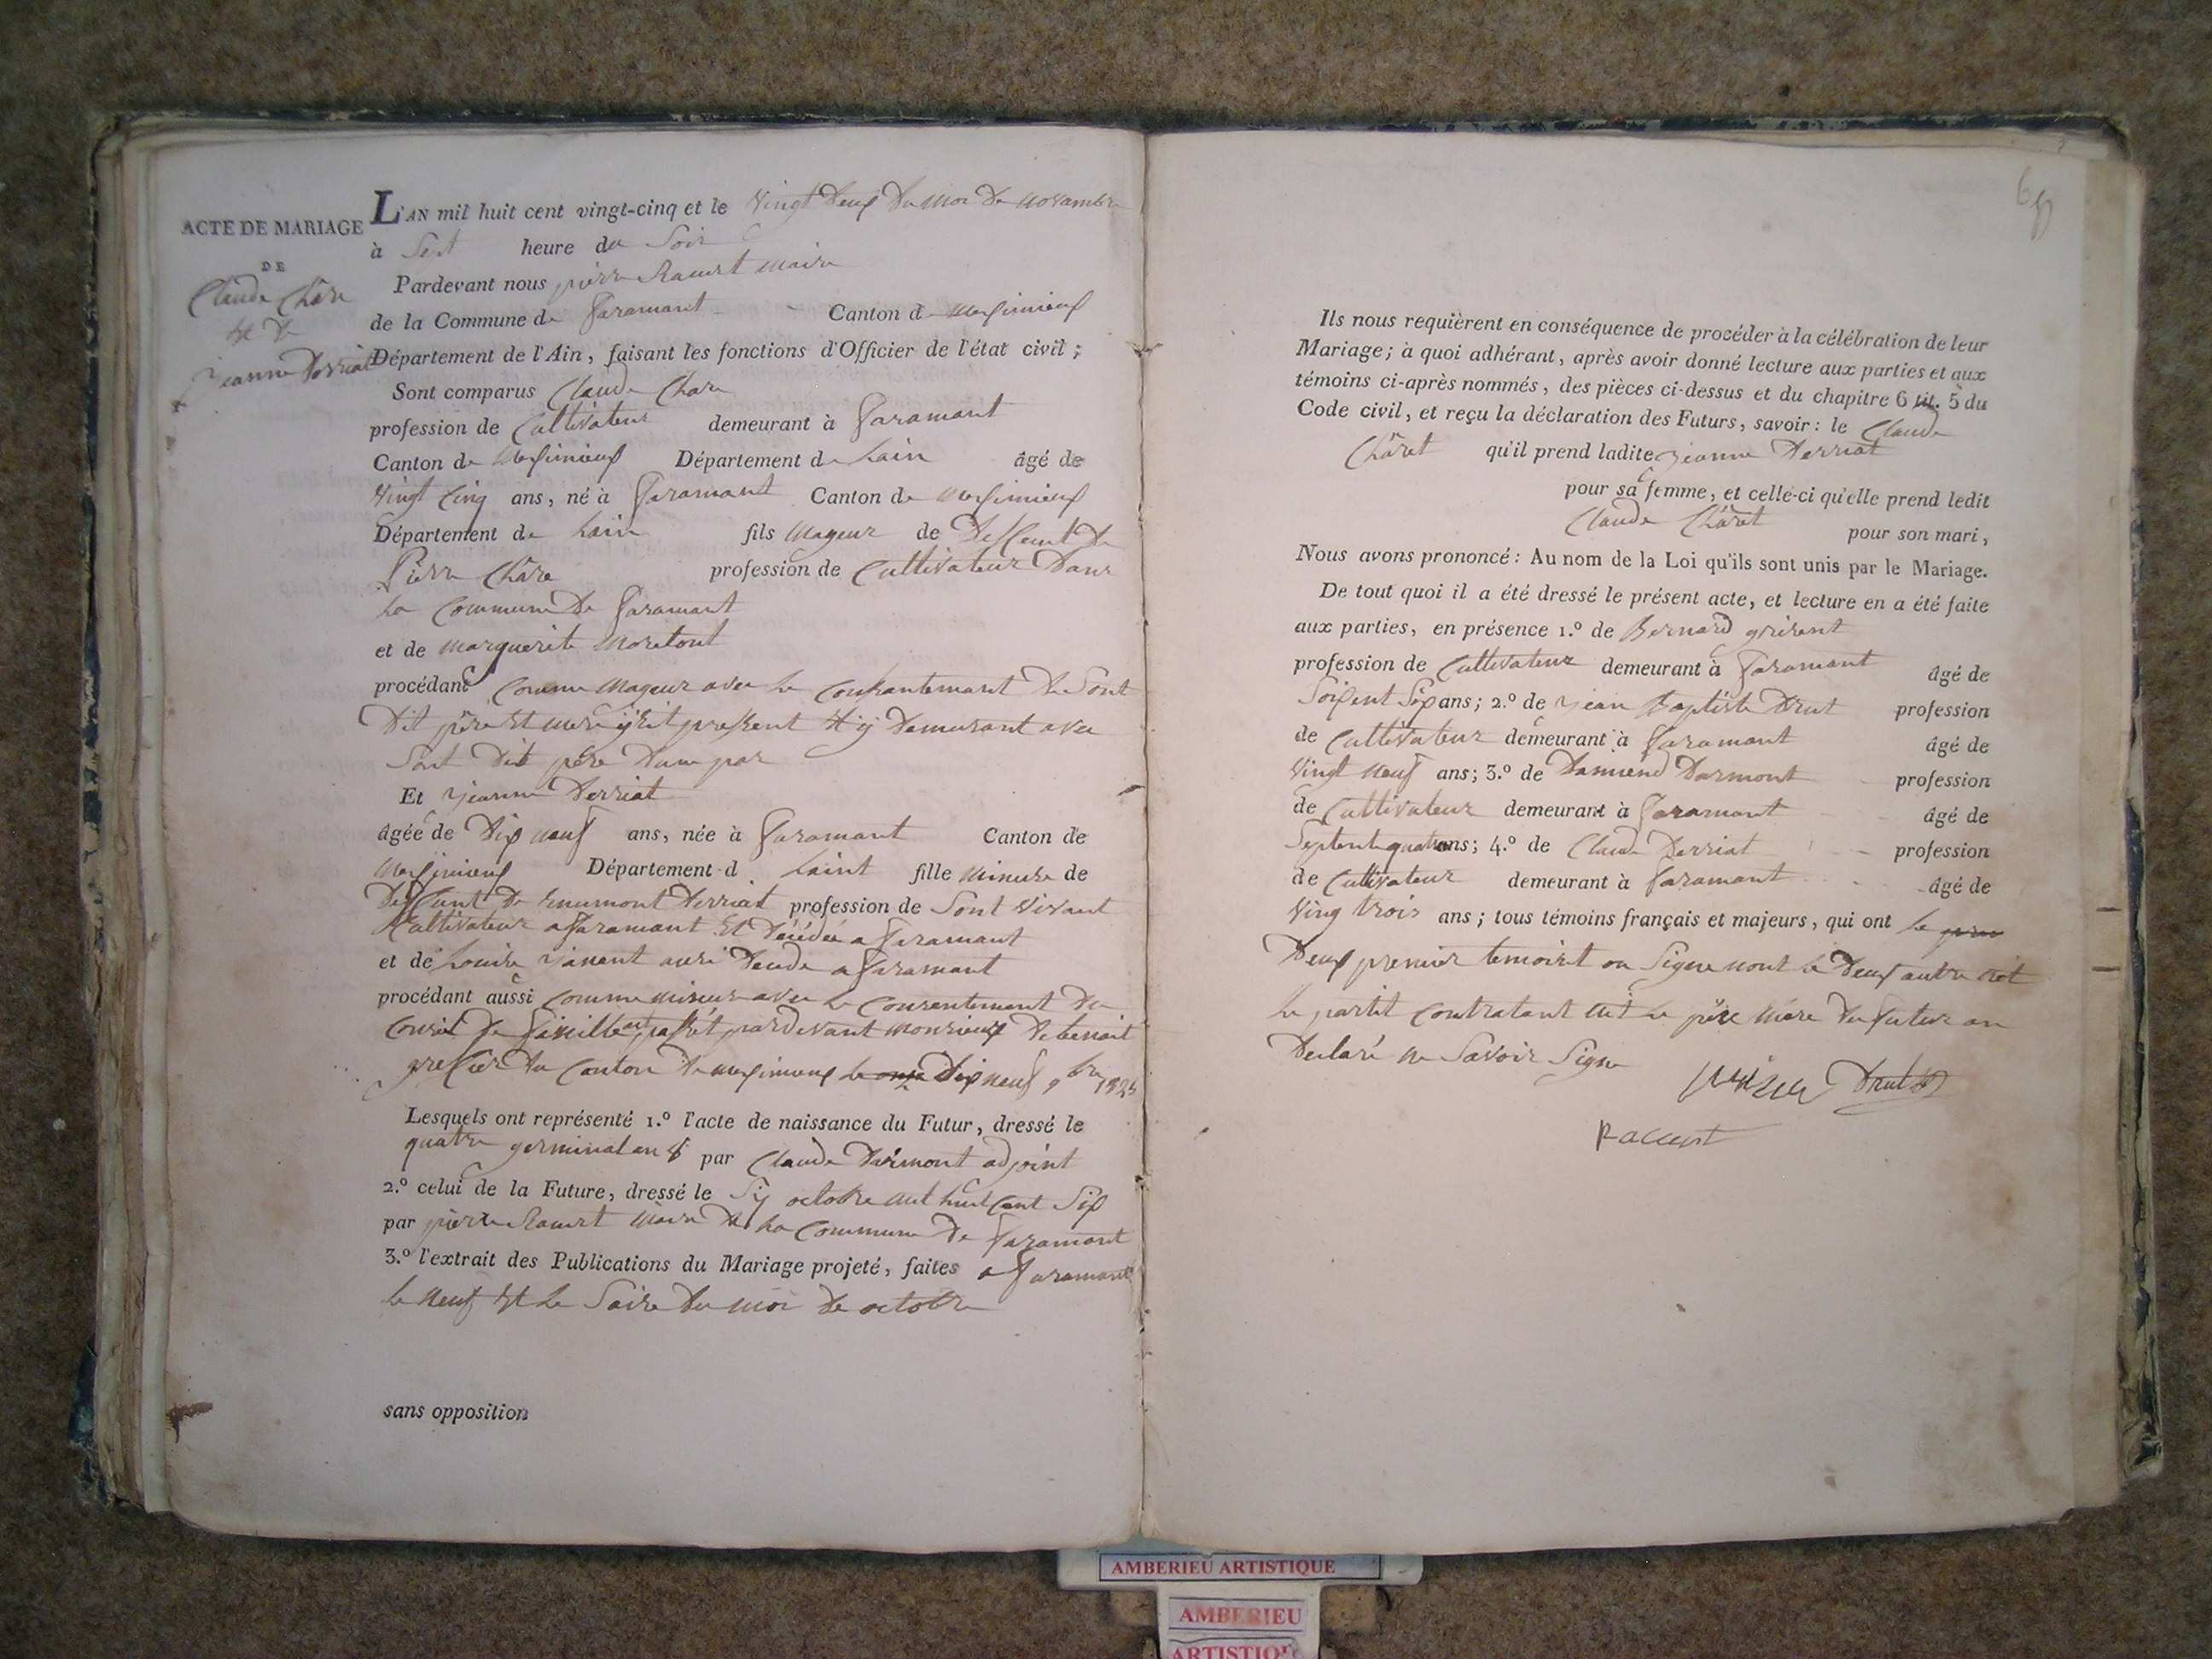 ACTE DE MARIAGE
DE
Claude Châre
et de
jeanne Derriat
L'AN mil huit cent vingt-cinq et le vingt deux du moi de novambre
à Sept heure du Soir
Pardevant nous pierre Racurt maire
de la Commune de faramant Canton de Meximieux
Département de l'Ain, faisant les fonctions d'Officier de l'état civil;
Sont comparus Claude Chare
profession de Cultivateur demeurant à faramant
Canton de Meximieux Département de Lain âgé de
vingt Cinq ans, né à faramant Canton de Meximieux
Département de Lain fils Mageur de
Pierre Châre profession de Cultivateur Dans
La Commune De faramant
et de Marguerite Moretout
procédant Comme Mageur avec le de Sont
Dit père et mere present et y Demeurant avec
Sont Dit père
Et jeanne Derriat
âgée de Dix neuf ans, née à faramant Canton de
Meximieux Département d Laint fille Mineure de
De Derriat profession de Sont vivant
Cultivateur a faramant Et Décédée a faramant
et de Louise janent a faramant
procédant aussi Comme Mineure avec le Consentement Du
Conseil De famille pardevant Monsieur
grefier Du Canton De Meximieux le onze Dix neuf 9bre 1825
Lesquels ont représenté 1.º l'acte de naissance du Futur, dressé le
quatre germinal an 8 par Claude Darmont adjoint
2.º celui de la Future, dressé le Six octobre mil huit Cent Six
par pierre Racurt Maire De La Commune De faramant
3.º l'extrait des Publications du Mariage projeté, faites a faramant
le neuf Et le Saize Du moi De octobre
sans opposition
Ils nous requièrent en conséquence de procéder à la célébration de leur
Mariage; à quoi adhérant, après avoir donné lecture aux parties et aux
témoins ci-après nommés, des pièces ci-dessus et du chapitre 6 tit. 5 du
Code civil, et reçu la déclaration des Futurs, savoir: le Claude
Châret qu'il prend ladite jeanne Derriat
pour sa femme, et celle-ci qu'elle prend ledit
Claude Châret pour son mari,
Nous avons prononcé: Au nom de la Loi qu'ils sont unis par le Mariage.
De tout quoi il a été dressé le présent acte, et lecture en a été faite
aux parties, en présence 1.º de Bernard
profession de Cultivateur demeurant à faramant âgé de
Soixent Six ans; 2.º de jean Baptiste Drut profession
de Cultivateur demeurant à faramant âgé de
Vingt neuf ans; 3.º de Darmont profession
de Cultivateur demeurant à faramant âgé de
Septente quatre ans; 4.º de Claude Derriat profession
de Cultivateur demeurant à faramant âgé de
Ving trois ans; tous témoins français et majeurs, qui ont le
Deux premier temoint on Signe nont le Deux autre
le partit Contratant le père mère Du futur on
Declaré ne Savoir Signe
Drut
Racurt
AMBERIEU ARTISTIQUE
AMBERIEU
ARTISTIQUE